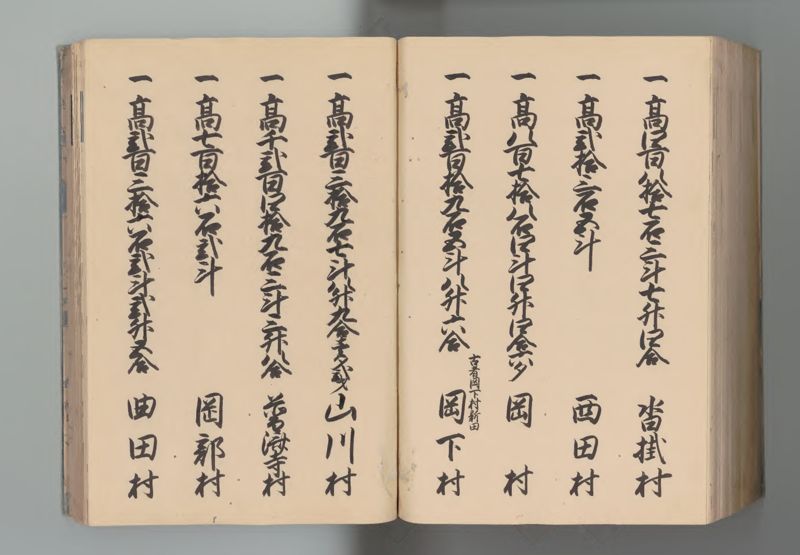 一 高四百八拾七石三斗七升四合 沓掛村
一 高弐拾三石五斗 西田村
一 高八百七拾八石四斗四升四合六夕 岡村
一 高弐百拾九石五斗八升六合 岡下村
古者岡下村新田
一 高弐百三拾九石七斗八升九合 山川村
一 高千弐百四拾九石三斗三升八合 村
一 高七百拾六石弐斗 岡部村
一 高弐百三拾六石弐斗弐升五合 曲田村